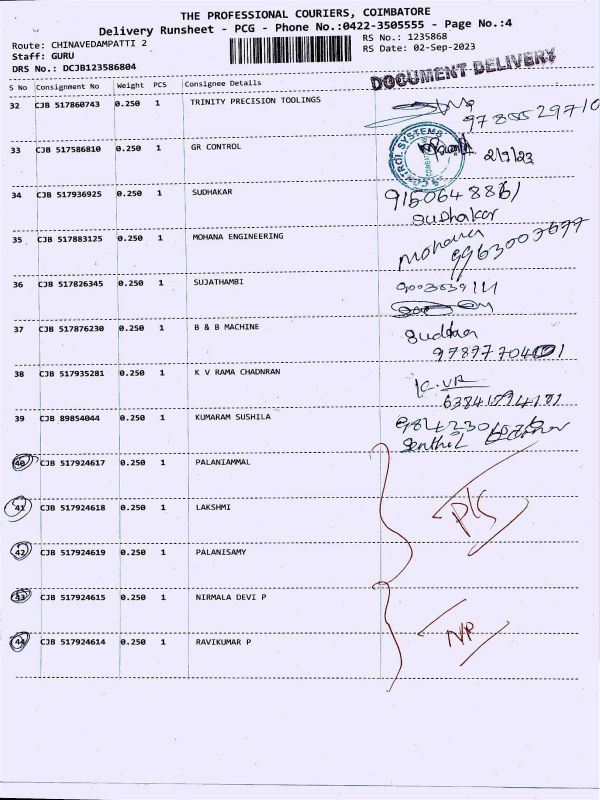 THE PROFESSIONAL COURIERS, COIMBATORE
Delivery Runsheet - PCG - Phone No.:0422-3505555 - Page No.:4
Route: CHINAVEDAMPATTI 2
RS No.: 1235868
Staff: GURU
RS Date: 02-Sep-2023
DRS No.: DCJB123586804
DOCUMENT DELIVERY
S No Consignment No Weight PCS Consignee Details
32 CJB 517860743 0.250 1 TRINITY PRECISION TOOLINGS
33 CJB 517586810 0.250 1 GR CONTROL
CONTROL SYSTEMS
2/9/23
34 CJB 517936925 0.250 1 SUDHAKAR
Sudhakar
35 CJB 517883125 0.250 1 MOHANA ENGINEERING
Mohana
36 CJB 517826345 0.250 1 SUJATHAMBI
37 CJB 517876230 0.250 1 B & B MACHINE
38 CJB 517935281 0.250 1 K V RAMA CHADNRAN
K.VR
39 CJB 89854044 0.250 1 KUMARAM SUSHILA
Senthil
40 CJB 517924617 0.250 1 PALANIAMMAL
41 CJB 517924618 0.250 1 LAKSHMI
42 CJB 517924619 0.250 1 PALANISAMY
43 CJB 517924615 0.250 1 NIRMALA DEVI P
44 CJB 517924614 0.250 1 RAVIKUMAR P